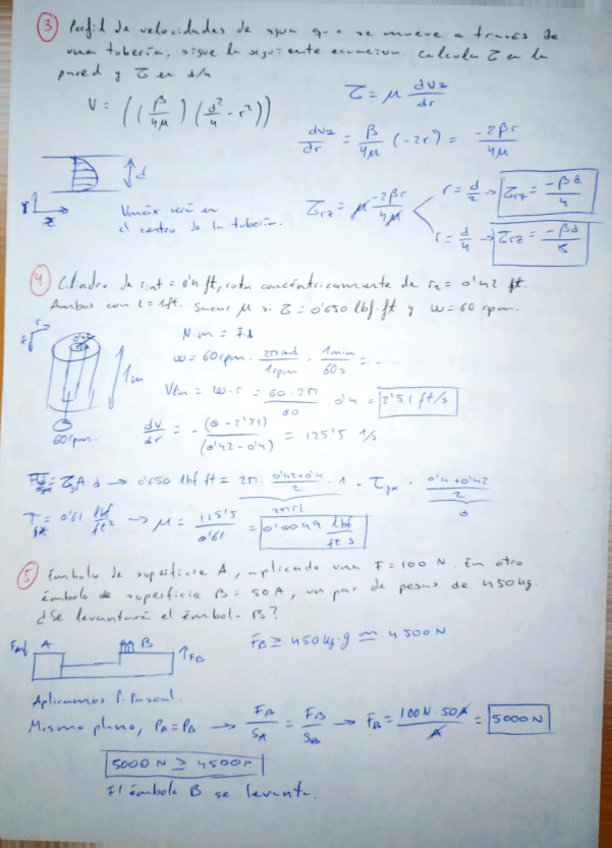 ③ Perfil de velocidades de agua que se mueve a través de
una tubería, sigue la siguiente ecuacion. Calcula τ en la
pared y τ en d/4
τ = μ dvz/dr
V = ((β/4μ)(d²/4 - r²))
dvz/dr = β/4μ (-2r) = -2βr/4μ
d
r
z
Vmáx será en
el centro de la tubería.
τrz = μ -2βr/4μ
r = d/2 → τrz = -βd/4
r = d/4 → τrz = -βd/8
④ Cilindro de r int = 0'4 ft, rota concéntricamente de r2 = 0'42 ft.
Ambos con L = 1ft. Sacar μ si τ = 0'650 lbf·ft y ω = 60 rpm.
N·m = F·d
ω = 60rpm · 2π rad/1rpm · 1min/60s = ...
1m
60rpm.
Vtan = ω·r = 60·2π/60 · 0'4 = 2'51 ft/s
dv/dr = -(0-2'51)/(0'42-0'4) = 125'5 1/s
A d → 0'650 lbf ft = 2π · 0'42+0'4/2 · 1 · τyx · 0'4+0'42/2
2πrL
τ = 0'61 lbf/ft² → μ = 125'5/0'61 = 0'0049 lbf/ft s
⑤ Embolo de superficie A, aplicado una F = 100 N. En otro
émbolo de superficie B = 50A, un par de pesas de 450kg.
¿Se levantará el émbolo B?
FA A B ↑FB
FB ≥ 450kg·g ≃ 4500N
Aplicamos P. Pascal.
Mismo plano, PA = PB → FA/SA = FB/SB → FB = 100N·50A/A = 5000N
5000N ≥ 4500N
El émbolo B se levanta.